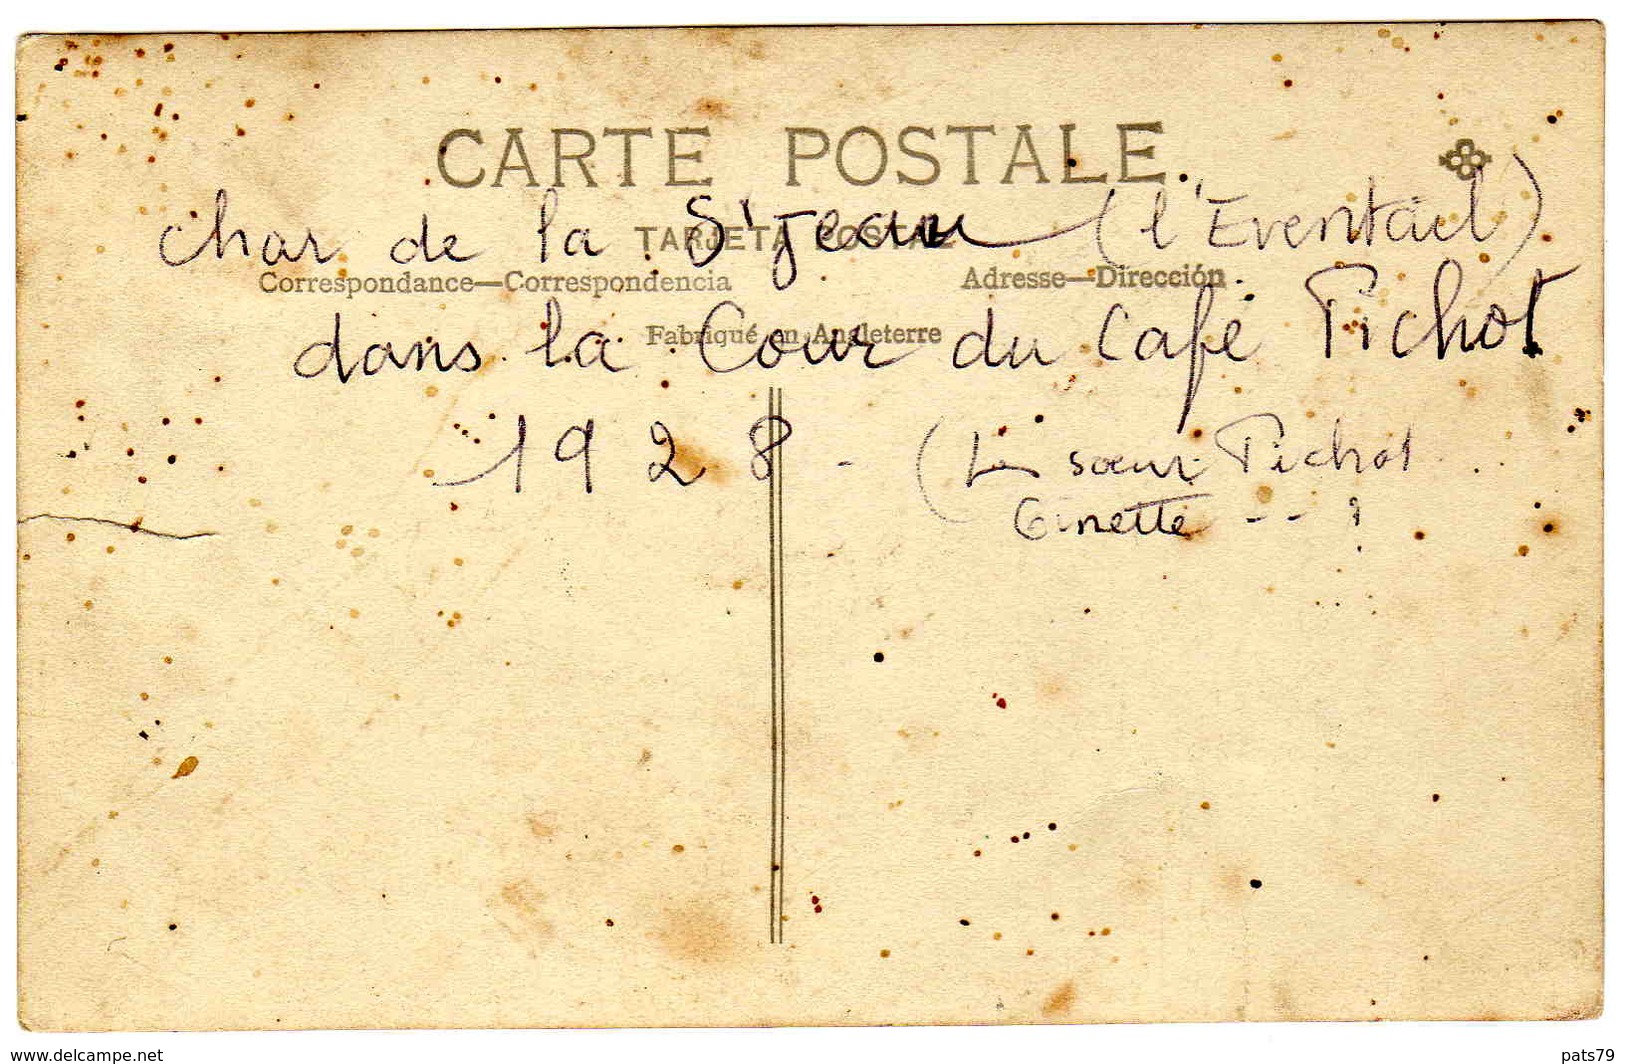 CARTE POSTALE.
TARJETA POSTAL
char de la St Jean (l'Eventail)
Correspondance—Correspondencia Adresse—Dirección
Fabriqué en Angleterre
dans la Cour du Café Pichot
1928 - (Les sœur Pichot
Ginette -- ?
www.delcampe.net
pats79